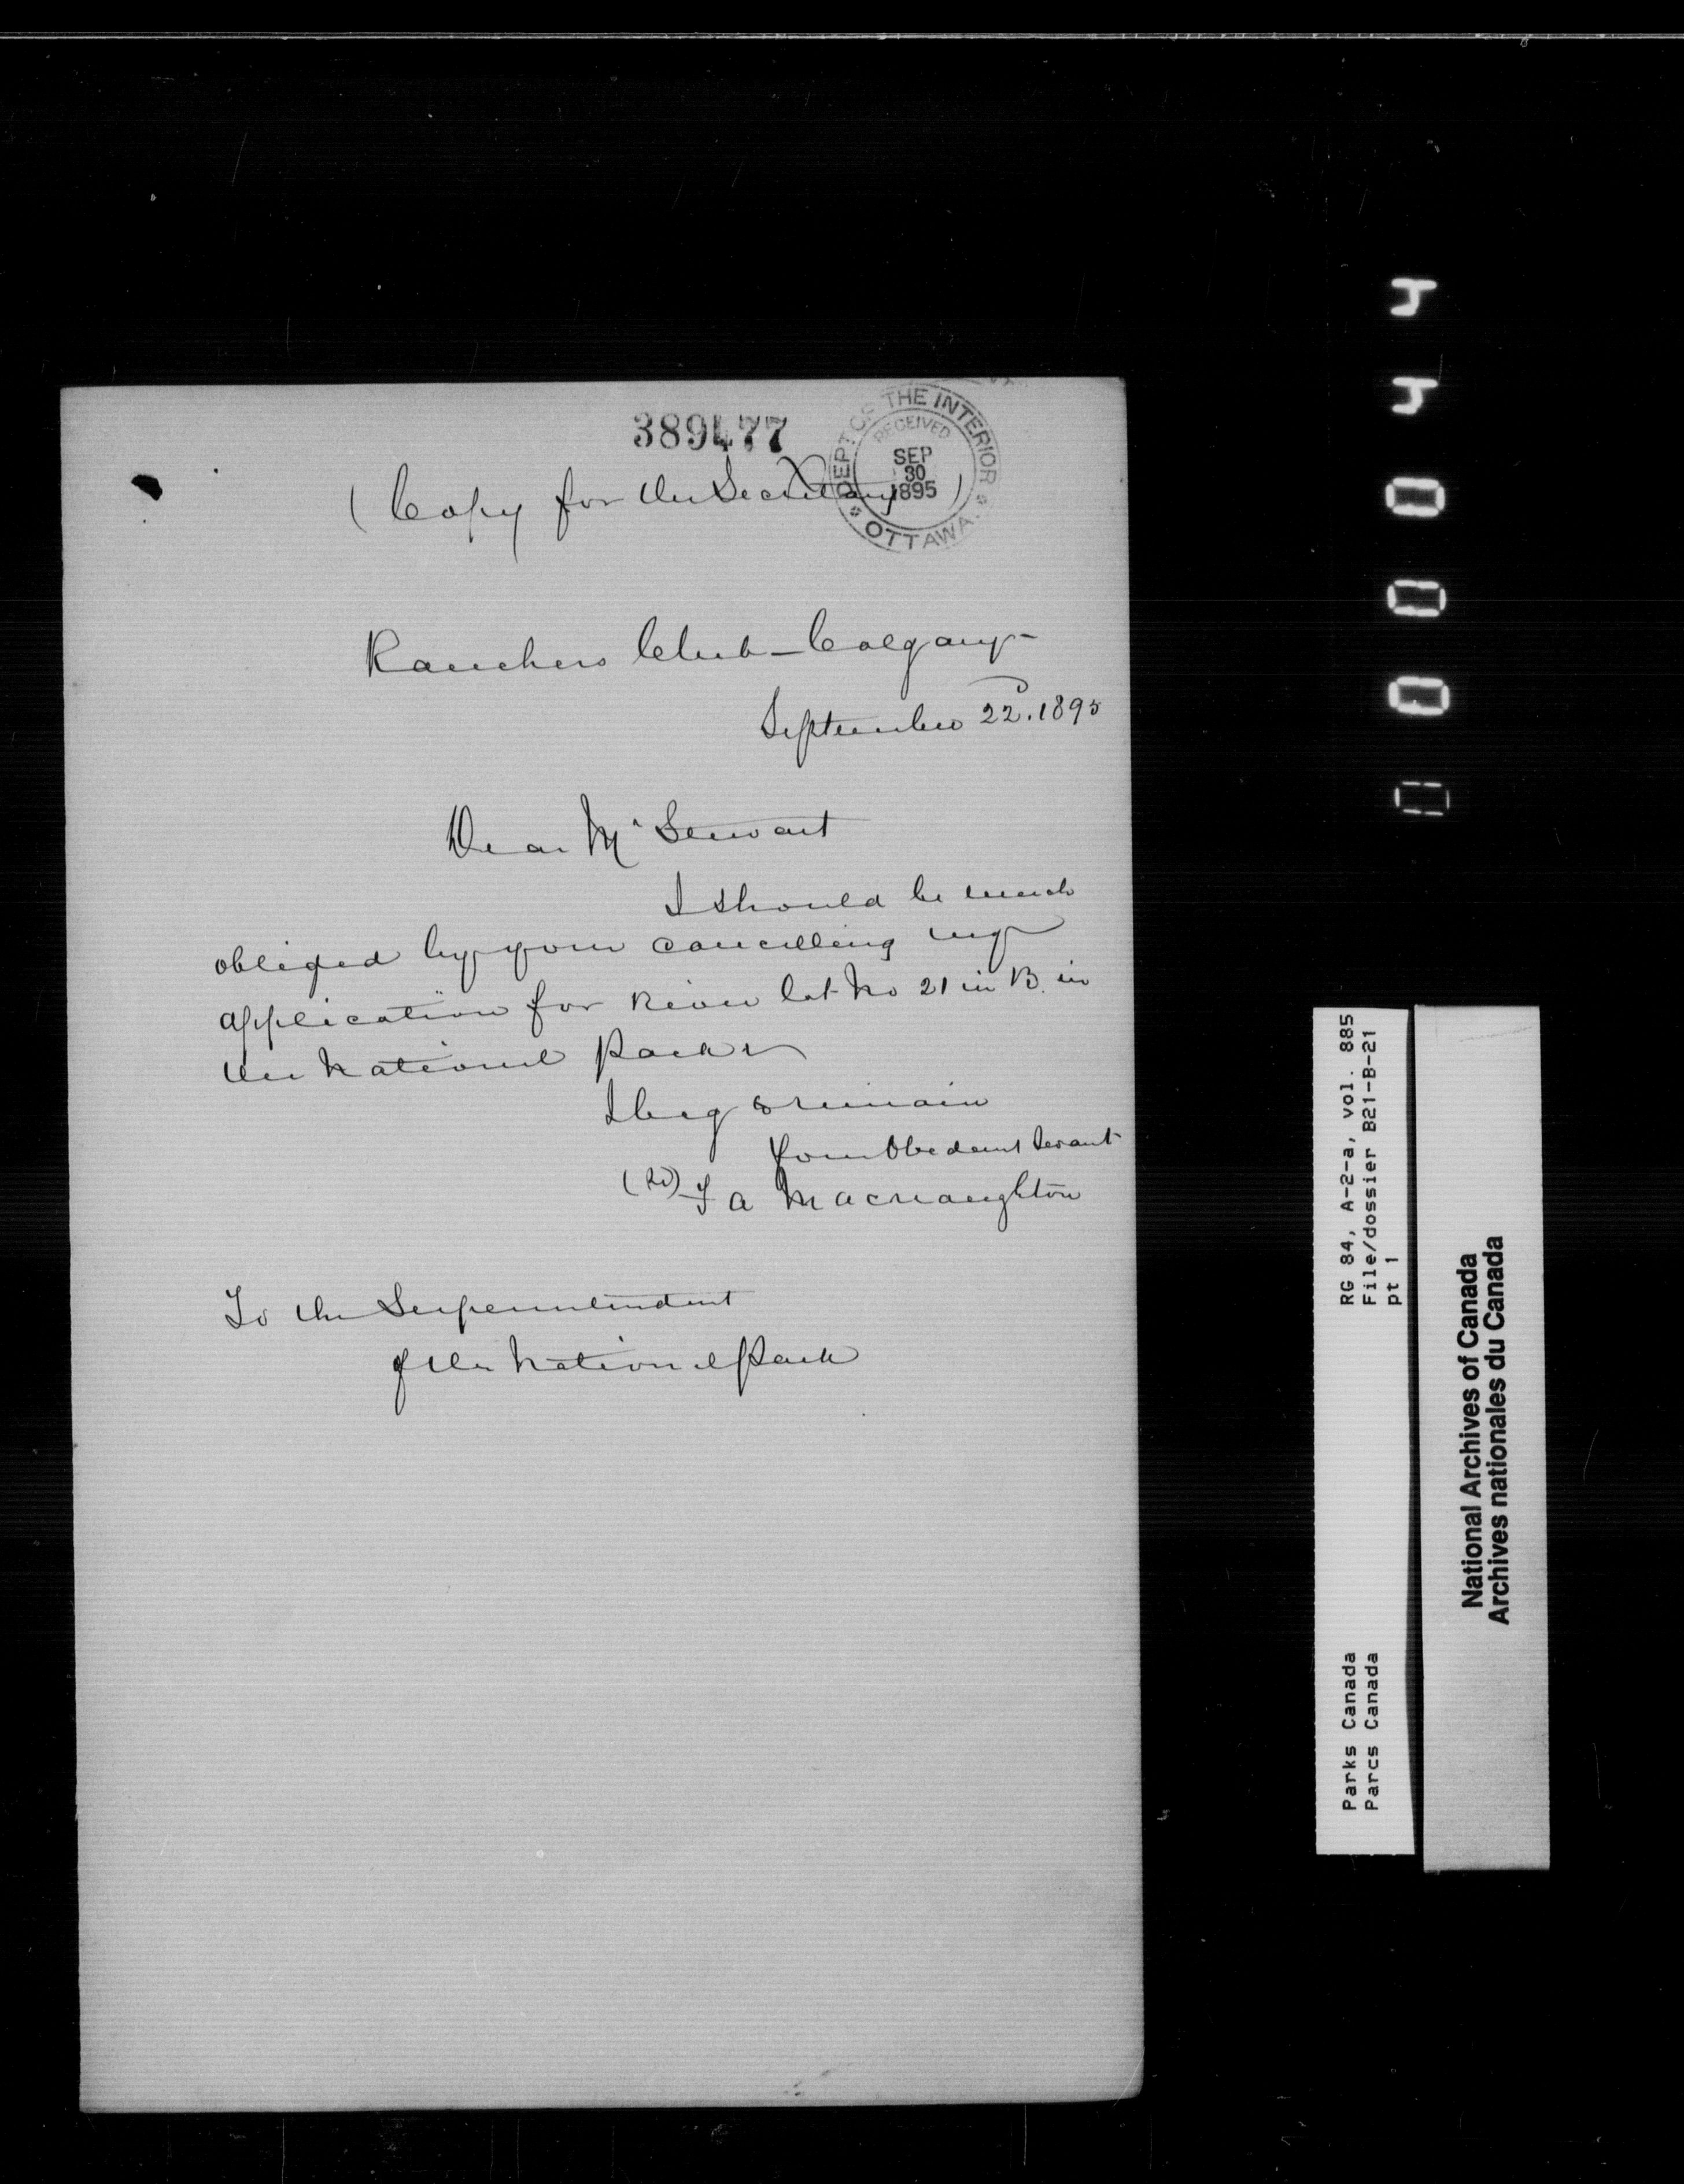 389477
DEPT OF THE INTERIOR
RECEIVED
SEP
30
1895
OTTAWA.
(Copy for the Secretary)
Ranchers Club - Calgary -
September 22. 1895
Dear Mr Stewart
I should be much
obliged by your cancelling my
application for River lot No 21 in B. in
the National Park
I beg to remain
Your Obedient Servant
F A Macnaughton
To the Superintendent
of the National Park
RG 84, A-2-a, vol. 885
File/dossier B21-B-21
pt 1
Parks Canada
Parcs Canada
National Archives of Canada
Archives nationales du Canada